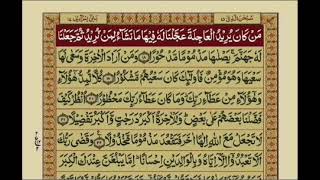 سُبْحٰنَ الَّذِيْٓ ١٥ بَنِيْٓ اِسْرَآءِيْل ١٧
مَنْ كَانَ يُرِيْدُ الْعَاجِلَةَ عَجَّلْنَا لَهٗ فِيْهَا مَا نَشَآءُ لِمَنْ نُّرِيْدُ ثُمَّ جَعَلْنَا
لَهٗ جَهَنَّمَ ۚ يَصْلٰىهَا مَذْمُوْمًا مَّدْحُوْرًا ﴿۱۸﴾ وَمَنْ اَرَادَ الْاٰخِرَةَ وَسَعٰى لَهَا
سَعْيَهَا وَهُوَ مُؤْمِنٌ فَاُولٰٓئِكَ كَانَ سَعْيُهُمْ مَّشْكُوْرًا ﴿۱۹﴾ كُلًّا نُّمِدُّ هٰٓؤُلَآءِ
وَهٰٓؤُلَآءِ مِنْ عَطَآءِ رَبِّكَ ؕ وَمَا كَانَ عَطَآءُ رَبِّكَ مَحْظُوْرًا ﴿۲۰﴾ اُنْظُرْ كَيْفَ
فَضَّلْنَا بَعْضَهُمْ عَلٰى بَعْضٍ ؕ وَلَلْاٰخِرَةُ اَكْبَرُ دَرَجٰتٍ وَّاَكْبَرُ تَفْضِيْلًا ﴿۲۱﴾
لَا تَجْعَلْ مَعَ اللّٰهِ اِلٰهًا اٰخَرَ فَتَقْعُدَ مَذْمُوْمًا مَّخْذُوْلًا ﴿۲۲﴾ وَقَضٰى رَبُّكَ
اَلَّا تَعْبُدُوْٓا اِلَّآ اِيَّاهُ وَبِالْوَالِدَيْنِ اِحْسَانًا ؕ اِمَّا يَبْلُغَنَّ عِنْدَكَ الْكِبَرَ